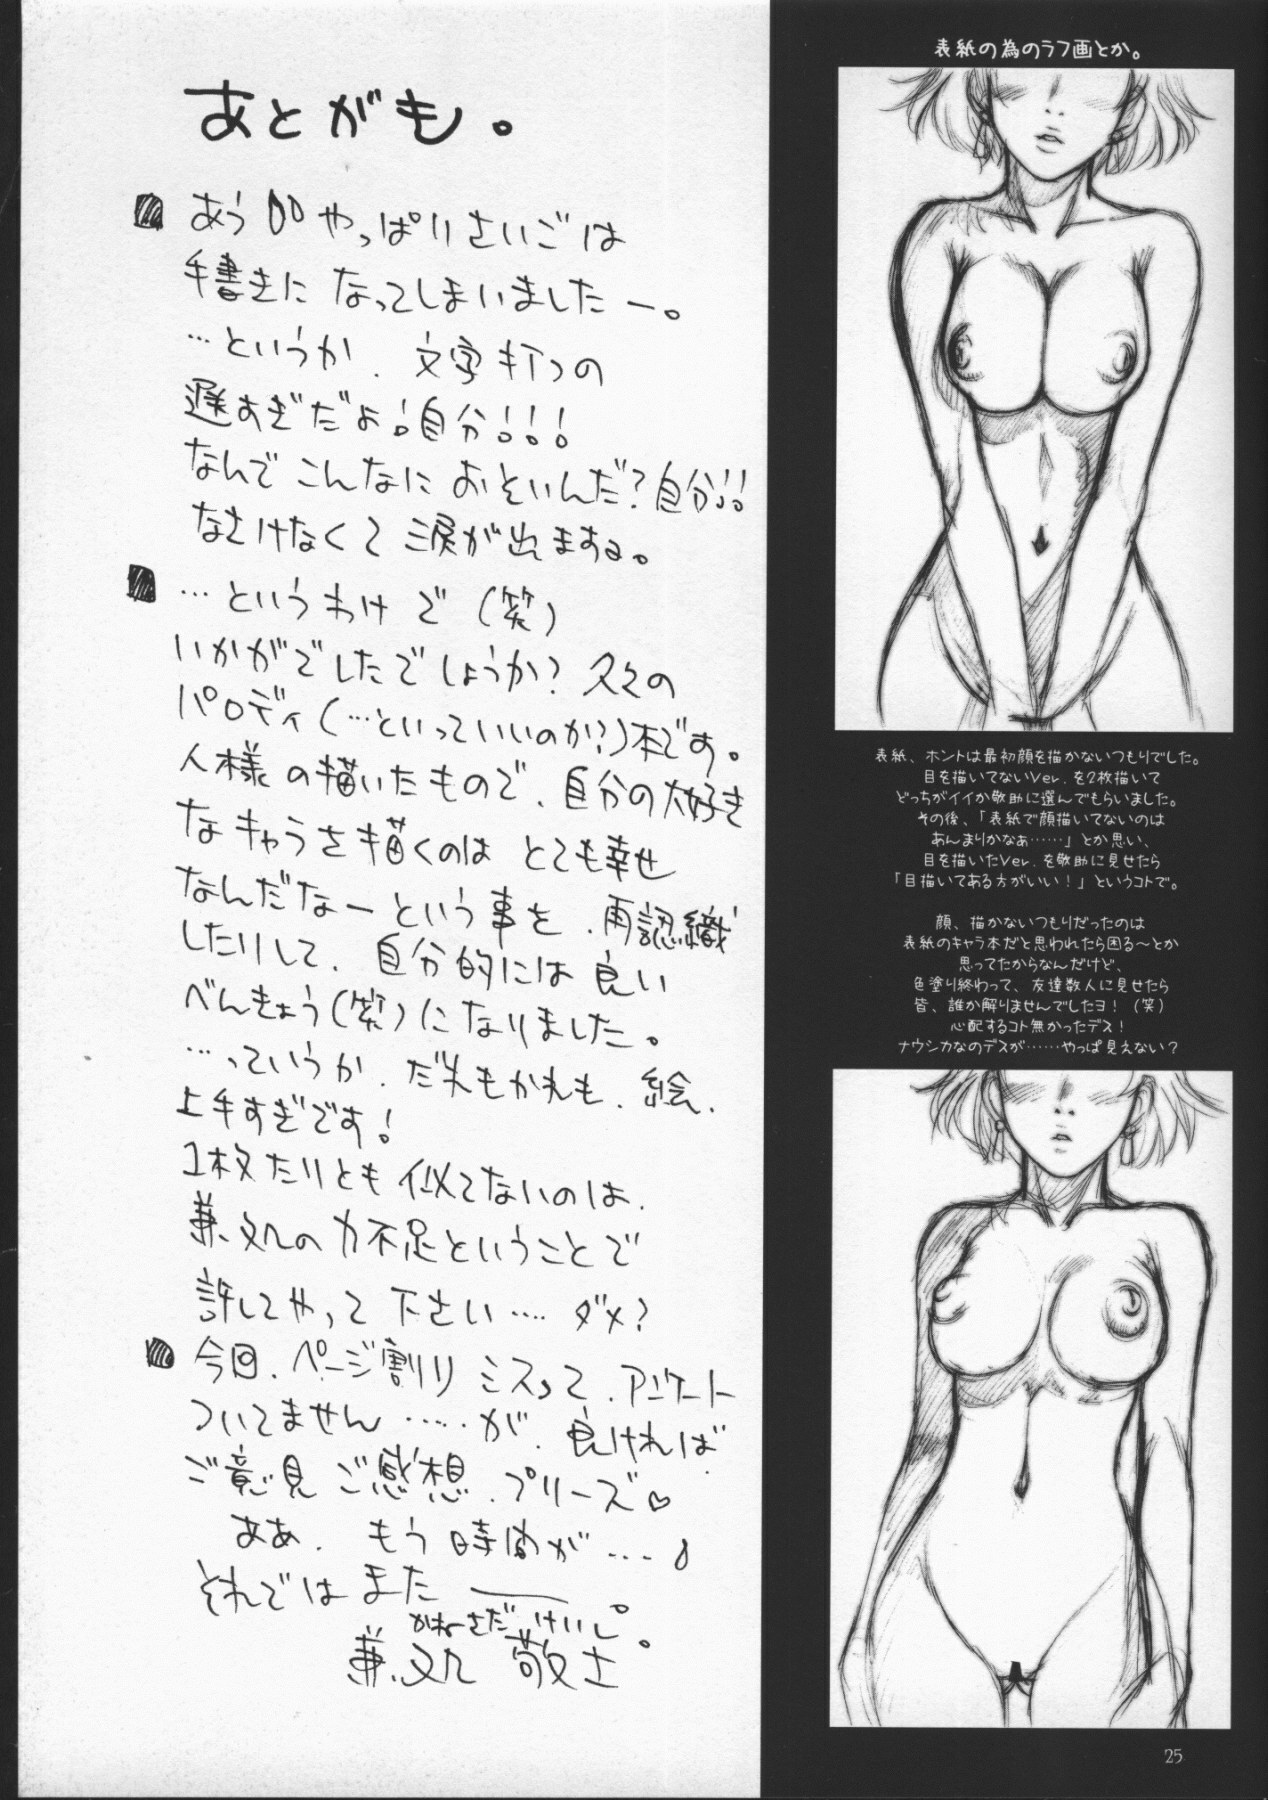 あとがも。
あう やっぱりさいごは
手書きに なってしまいましたー。
…というか. 文字打つの
遅すぎだよ!自分!!!
なんで こんなに おそいんだ?自分!!
なさけなくて 涙が出ますよ。
…というわけで(笑)
いかがでしたでしょうか? 久々の
パロディ(…といっていいのか?)本です。
人様の描いたもので、自分の大好き
なキャラを描くのは とても幸せ
なんだなーという事を、再認識
したりして、自分的には良い
べんきょう(笑)になりました。
…っていうか、だれもかれも、絵、
上手すぎです!
1枚たりとも似てないのは、
兼処の力不足ということで
許してやって下さい…. ダメ?
今回、ページ割りミスって、アンケート
ついてません……が、良ければ
ご意見ご感想、プリーズ♡
ああ、もう時間が…
それではまたー。
かねさだ けいし。
兼処 敬士
表紙の為のラフ画とか。
表紙、ホントは最初顔を描かないつもりでした。
目を描いてないVer.を2枚描いて
どっちがイイか敬助に選んでもらいました。
その後、「表紙で顔描いてないのは
あんまりかなぁ……」とか思い、
目を描いたVer.を敬助に見せたら
「目描いてある方がいい！」というコトで。
顔、描かないつもりだったのは
表紙のキャラ本だと思われたら困る～とか
思ってたからなんだけど、
色塗り終わって、友達数人に見せたら
皆、誰か解りませんでしたヨ！（笑）
心配するコト無かったデス！
ナウシカなのデスが……やっぱ見えない？
25